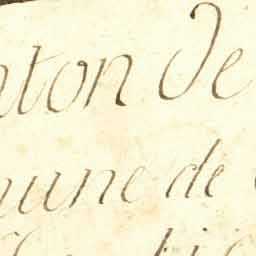 nton de
mune de